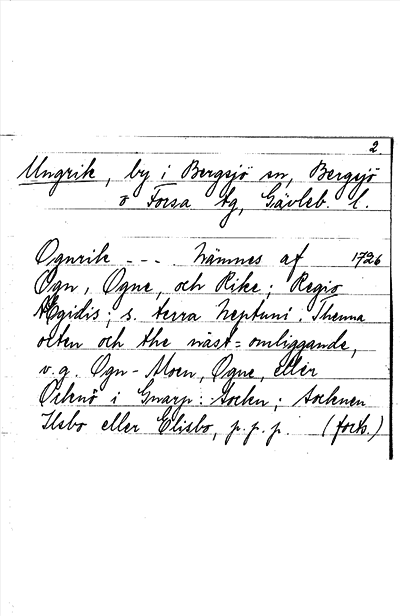 2.
Ungrik, by i Bergsjö sn, Bergsjö
o Forsa tg, Gävleb. l.
Ognrik --- nämnes af 1726
Ogn, Ogne, och Rike; Regio
Ægidis; s. terra Neptuni. Thenna
orten och the näst=omliggande,
v.g. Ogn-Moen, Ogne, eller
Orknö i Gnarp: Socken; Socknen
Ilsbo eller Elisbo, p.p.p. (forts.)